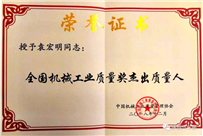 荣誉证书
授予袁宏明同志:
全国机械工业质量奖杰出质量人
中国机械
管理协会
二〇一八年八月